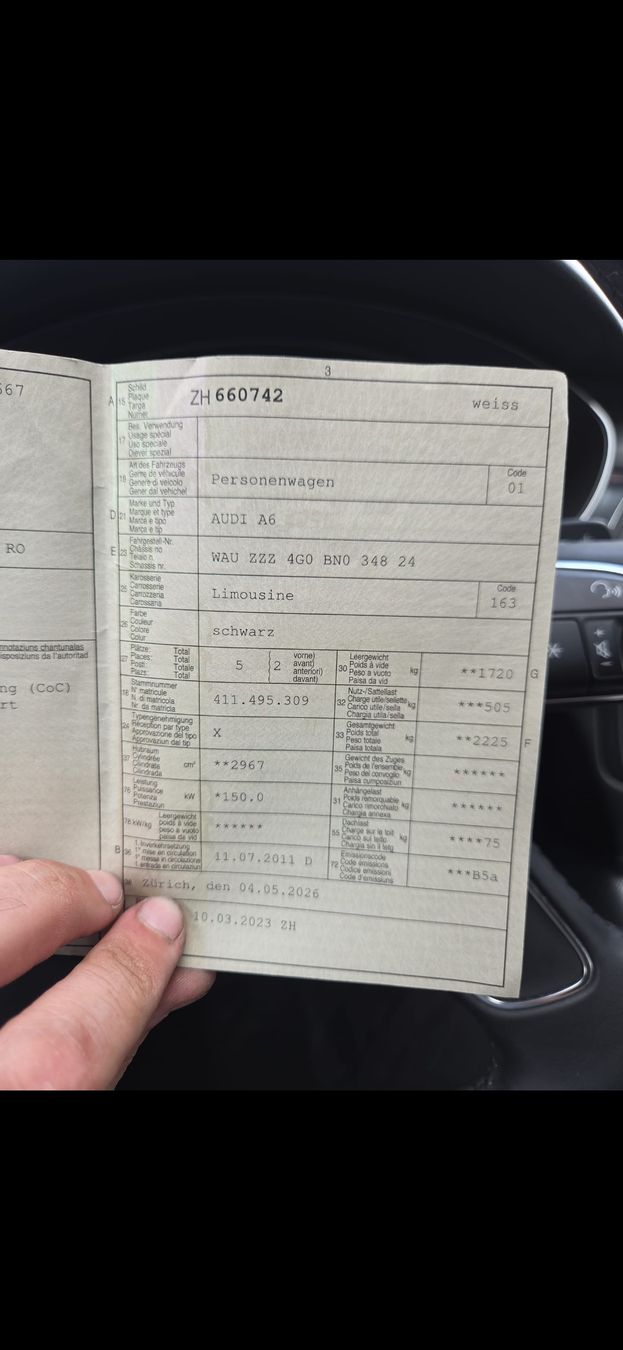 3
567
RO
nnotaziuns chantunalas
isposiziuns da l'autoritad
ng (CoC)
rt
A 15 Schild
Plaque
Targa
Numer
ZH 660742 weiss
17 Bes. Verwendung
Usage spécial
Uso speciale
Diever spezial
19 Art des Fahrzeugs
Genre de véhicule
Genere di veicolo
Gener dal vehichel
Personenwagen
Code
01
D 21 Marke und Typ
Marque et type
Marca e tipo
Marca e tip
AUDI A6
E 23 Fahrgestell-Nr.
Châssis no
Telaio n.
Schassis nr.
WAU ZZZ 4G0 BN0 348 24
25 Karosserie
Carrosserie
Carrozzeria
Carossaria
Limousine
Code
163
26 Farbe
Couleur
Colore
Colur
schwarz
27 Plätze: Total
Places: Total
Posti: Totale
Plazs: Total
5
2
vorne)
avant)
anteriori)
davant)
30 Leergewicht
Poids à vide
Peso a vuoto
Paisa da vid
kg
**1720 G
18 Stammnummer
N° matricule
N. di matricola
Nr. da matricla
411.495.309
32 Nutz-/Sattellast
Charge utile/sellette
Carico utile/sella
Chargia utila/sella
kg
***505
24 Typengenehmigung
Réception par type
Approvazione del tipo
Approvaziun dal tip
X
33 Gesamtgewicht
Poids total
Peso totale
Paisa totala
kg
**2225 F
37 Hubraum
Cylindrée
Cilindrata
Cilindrada
cm³
**2967
35 Gewicht des Zuges
Poids de l'ensemble
Peso del convoglio
Paisa cumposiziun
kg
******
76 Leistung
Puissance
Potenza
Prestaziun
kW
*150.0
31 Anhängelast
Poids remorquable
Carico rimorchiato
Chargia annexa
kg
******
78 kW/kg
Leergewicht
poids à vide
peso a vuoto
paisa da vid
******
55 Dachlast
Charge sur le toit
Carico sul tetto
Chargia sin il tetg
kg
****75
B 36 1. Inverkehrsetzung
1re mise en circulation
1a messa in circolazione
1. entrada en circulaziun
11.07.2011 D
72 Emissionscode
Code émissions
Codice emissioni
Code d'emissiuns
***B5a
Zürich, den 04.05.2026
10.03.2023 ZH